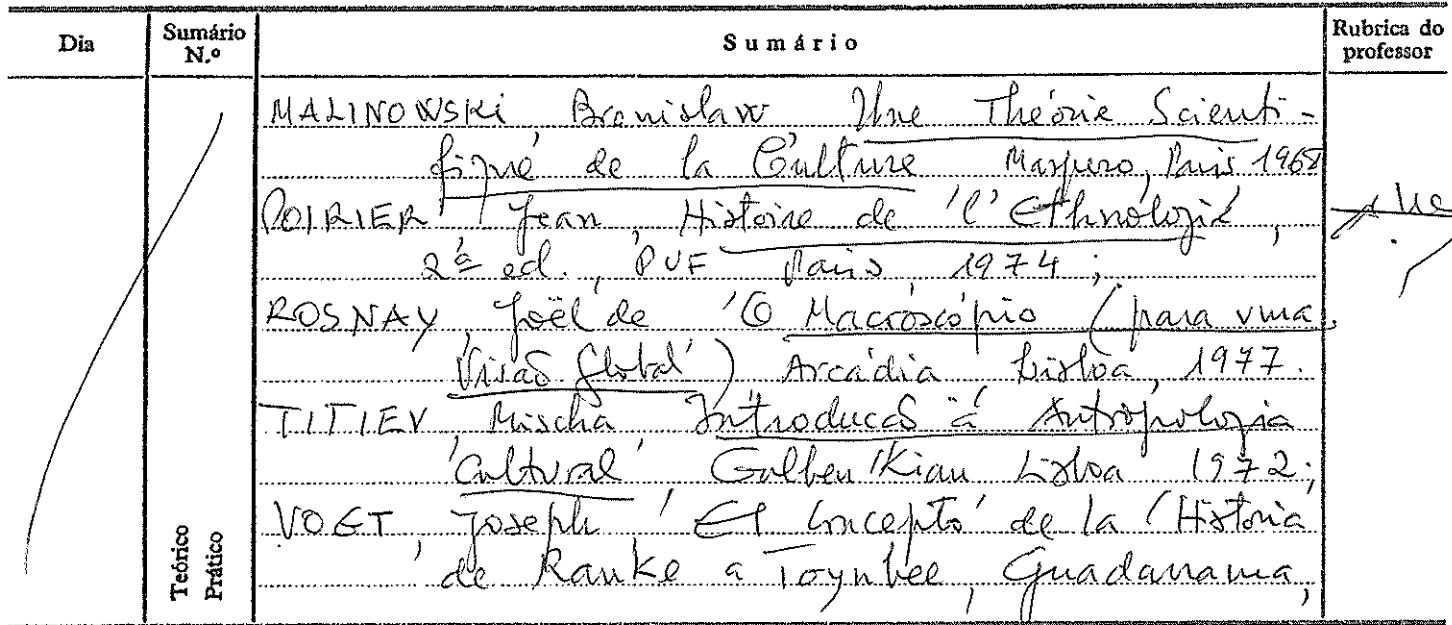 Dia
Sumário N.º
Sumário
Rubrica do professor
MALINOWSKI, Bronislaw, Une Théorie Scienti-
fique de la Culture, Maspero, Paris, 1968
POIRIER, Jean, Histoire de l'Ethnologie,
2ª ed., PUF, Paris, 1974;
ROSNAY, Joël de, O Macroscópio (para uma
Visão Global), Arcádia, Lisboa, 1977.
TITIEV, Mischa, Introdução à Antropologia
Cultural, Gulbenkian, Lisboa, 1972;
VOGT, Joseph, El Concepto de la Historia
de Ranke a Toynbee, Guadarrama,
Teórico
Prático